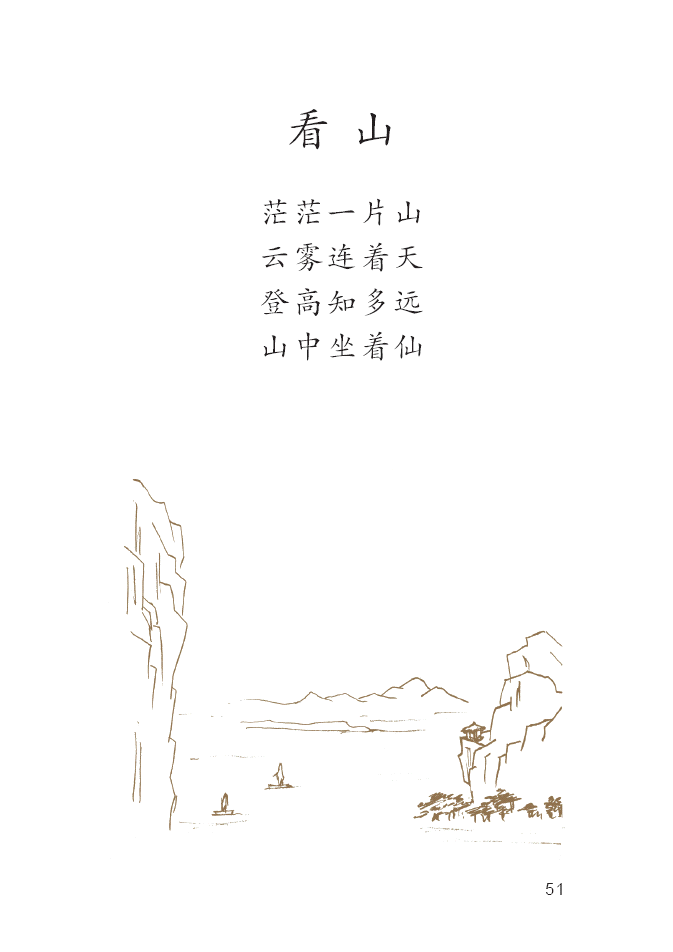 看山
茫茫一片山
云雾连着天
登高知多远
山中坐着仙
51